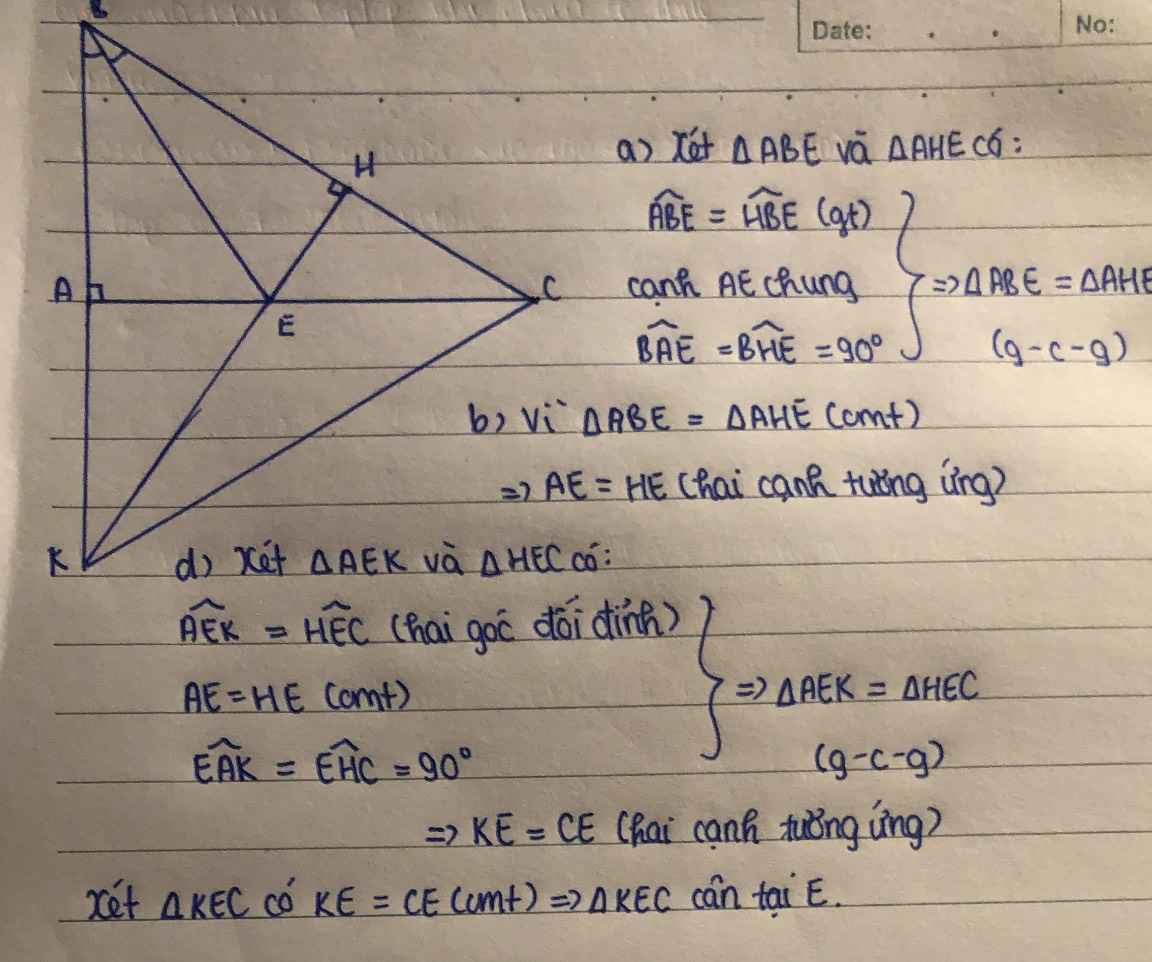 B
Date: . . No:
a) Xét ΔABE và ΔAHE có:
H
ABE = HBE (gt)
A C cạnh AE chung => ΔABE = ΔAHE
E
BAE = BHE = 90° (g-c-g)
b) Vì ΔABE = ΔAHE (cmt)
=> AE = HE (hai cạnh tương ứng)
K d) Xét ΔAEK và ΔHEC có:
AEK = HEC (hai góc đối đỉnh)
AE = HE (cmt) => ΔAEK = ΔHEC
EAK = EHC = 90° (g-c-g)
=> KE = CE (hai cạnh tương ứng)
Xét ΔKEC có KE = CE (cmt) => ΔKEC cân tại E.